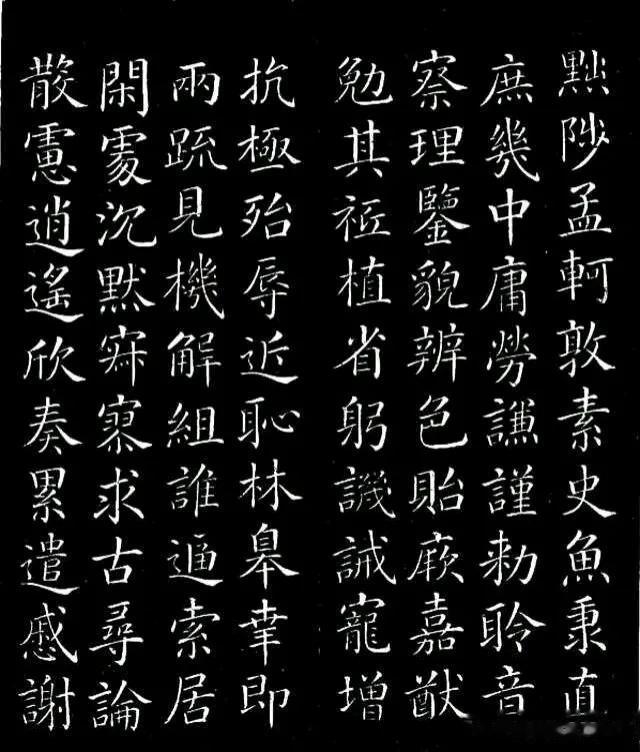 黜陟孟軻敦素史魚秉直
庶幾中庸勞謙謹勅聆音
察理鑒貌辨色貽厥嘉猷
勉其祗植省躬譏誡寵增
抗極殆辱近恥林皋幸即
兩疏見機解組誰逼索居
閑處沉默寂寥求古尋論
散慮逍遙欣奏累遣慼謝